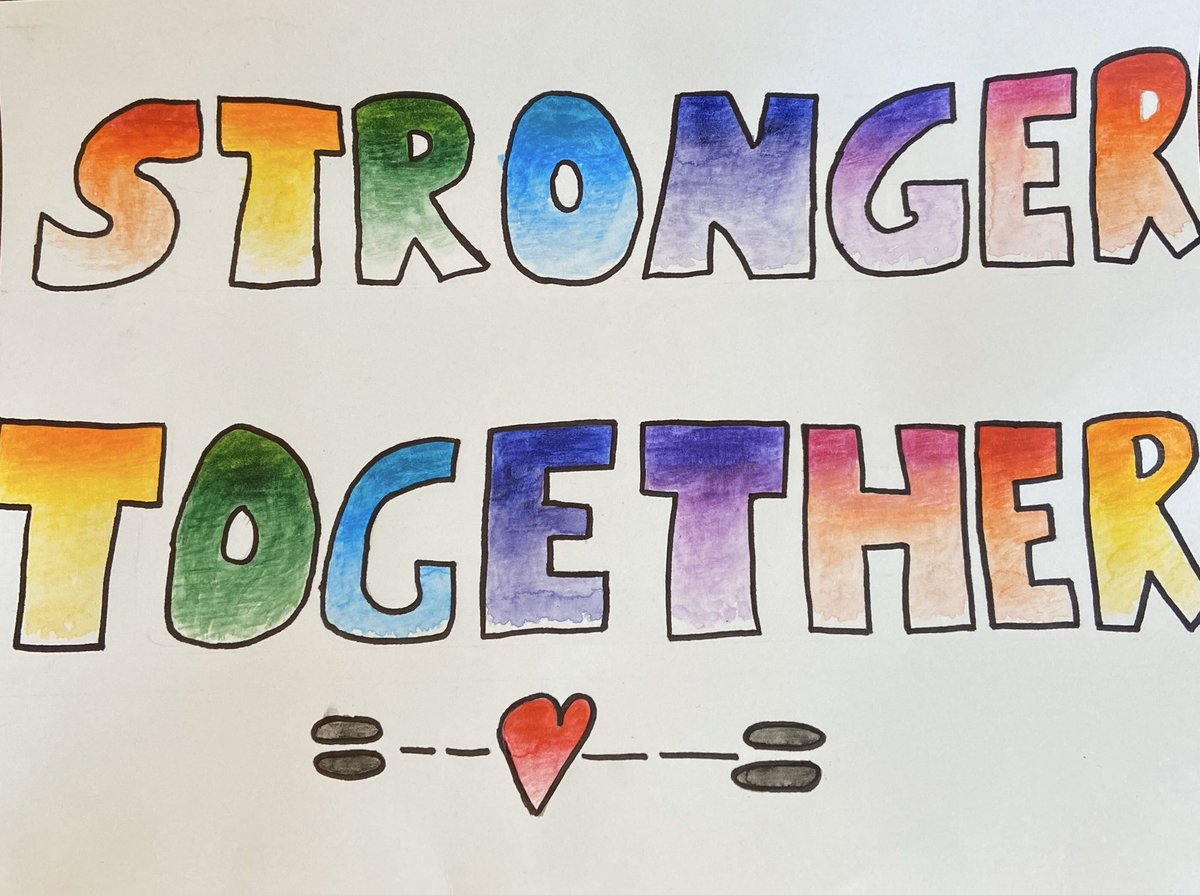 STRONGER
TOGETHER